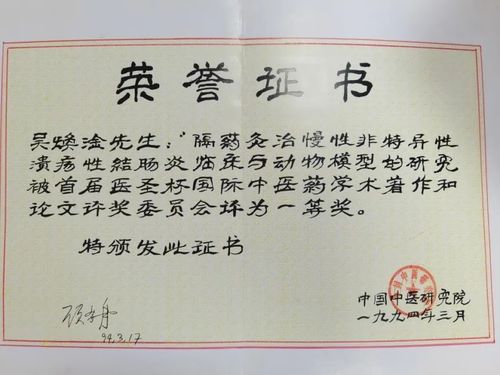 荣誉证书
吴焕淦先生："隔药灸治慢性非特异性
溃疡性结肠炎临床与动物模型的研究
被首届医圣杯国际中医药学术著作和
论文评奖委员会评为一等奖。
特颁发此证书
中国中医研究院
一九九四年三月
94.3.17